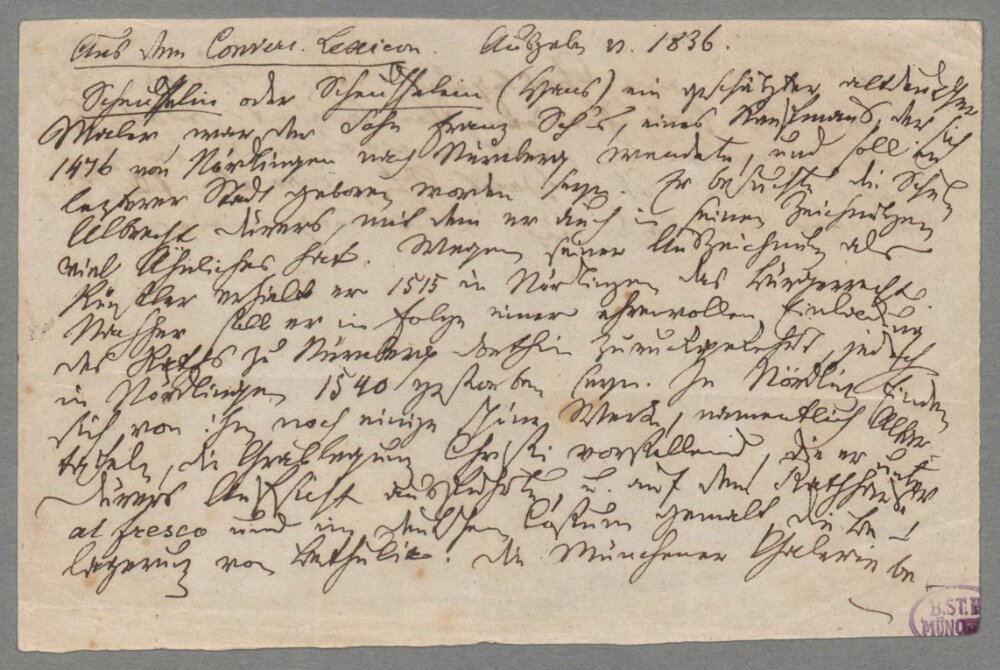 Aus dem Convers. Lexicon. Ausgabe v. 1836.
Scheuffelin oder Scheuffelein (Hans) ein geschätzter altdeutscher
Maler, war der Sohn Franz Sch's, eines Kaufmanns, der sich
1476 von Nördlingen nach Nürnberg wendete, und soll in
letzterer Stadt geboren worden seyn. Er besuchte die Schule
Albrecht Dürers, mit dem er auch in seinen Zeichnungen
viel Ähnliches hat. Wegen seiner Auszeichnung als
Künstler erhielt er 1515 in Nördlingen das Bürgerrecht.
Nachher soll er in Folge einer ehrenvollen Einladung
des Raths zu Nürnberg dorthin zurückgekehrt, jedoch
in Nördlingen 1540 gestorben seyn. In Nördling finden
sich von ihm noch einige schöne Werke, namentlich Altar-
tafeln, die Grablegung Christi vorstellend, die er unter
Dürers Aufsicht ausführte, u. auf dem Rathhause
al fresco und im deutschen Costum gemalt, die Be-
lagerung von Bethulie. die Münchener Galerie be-
B.ST.B
MÜNCHEN